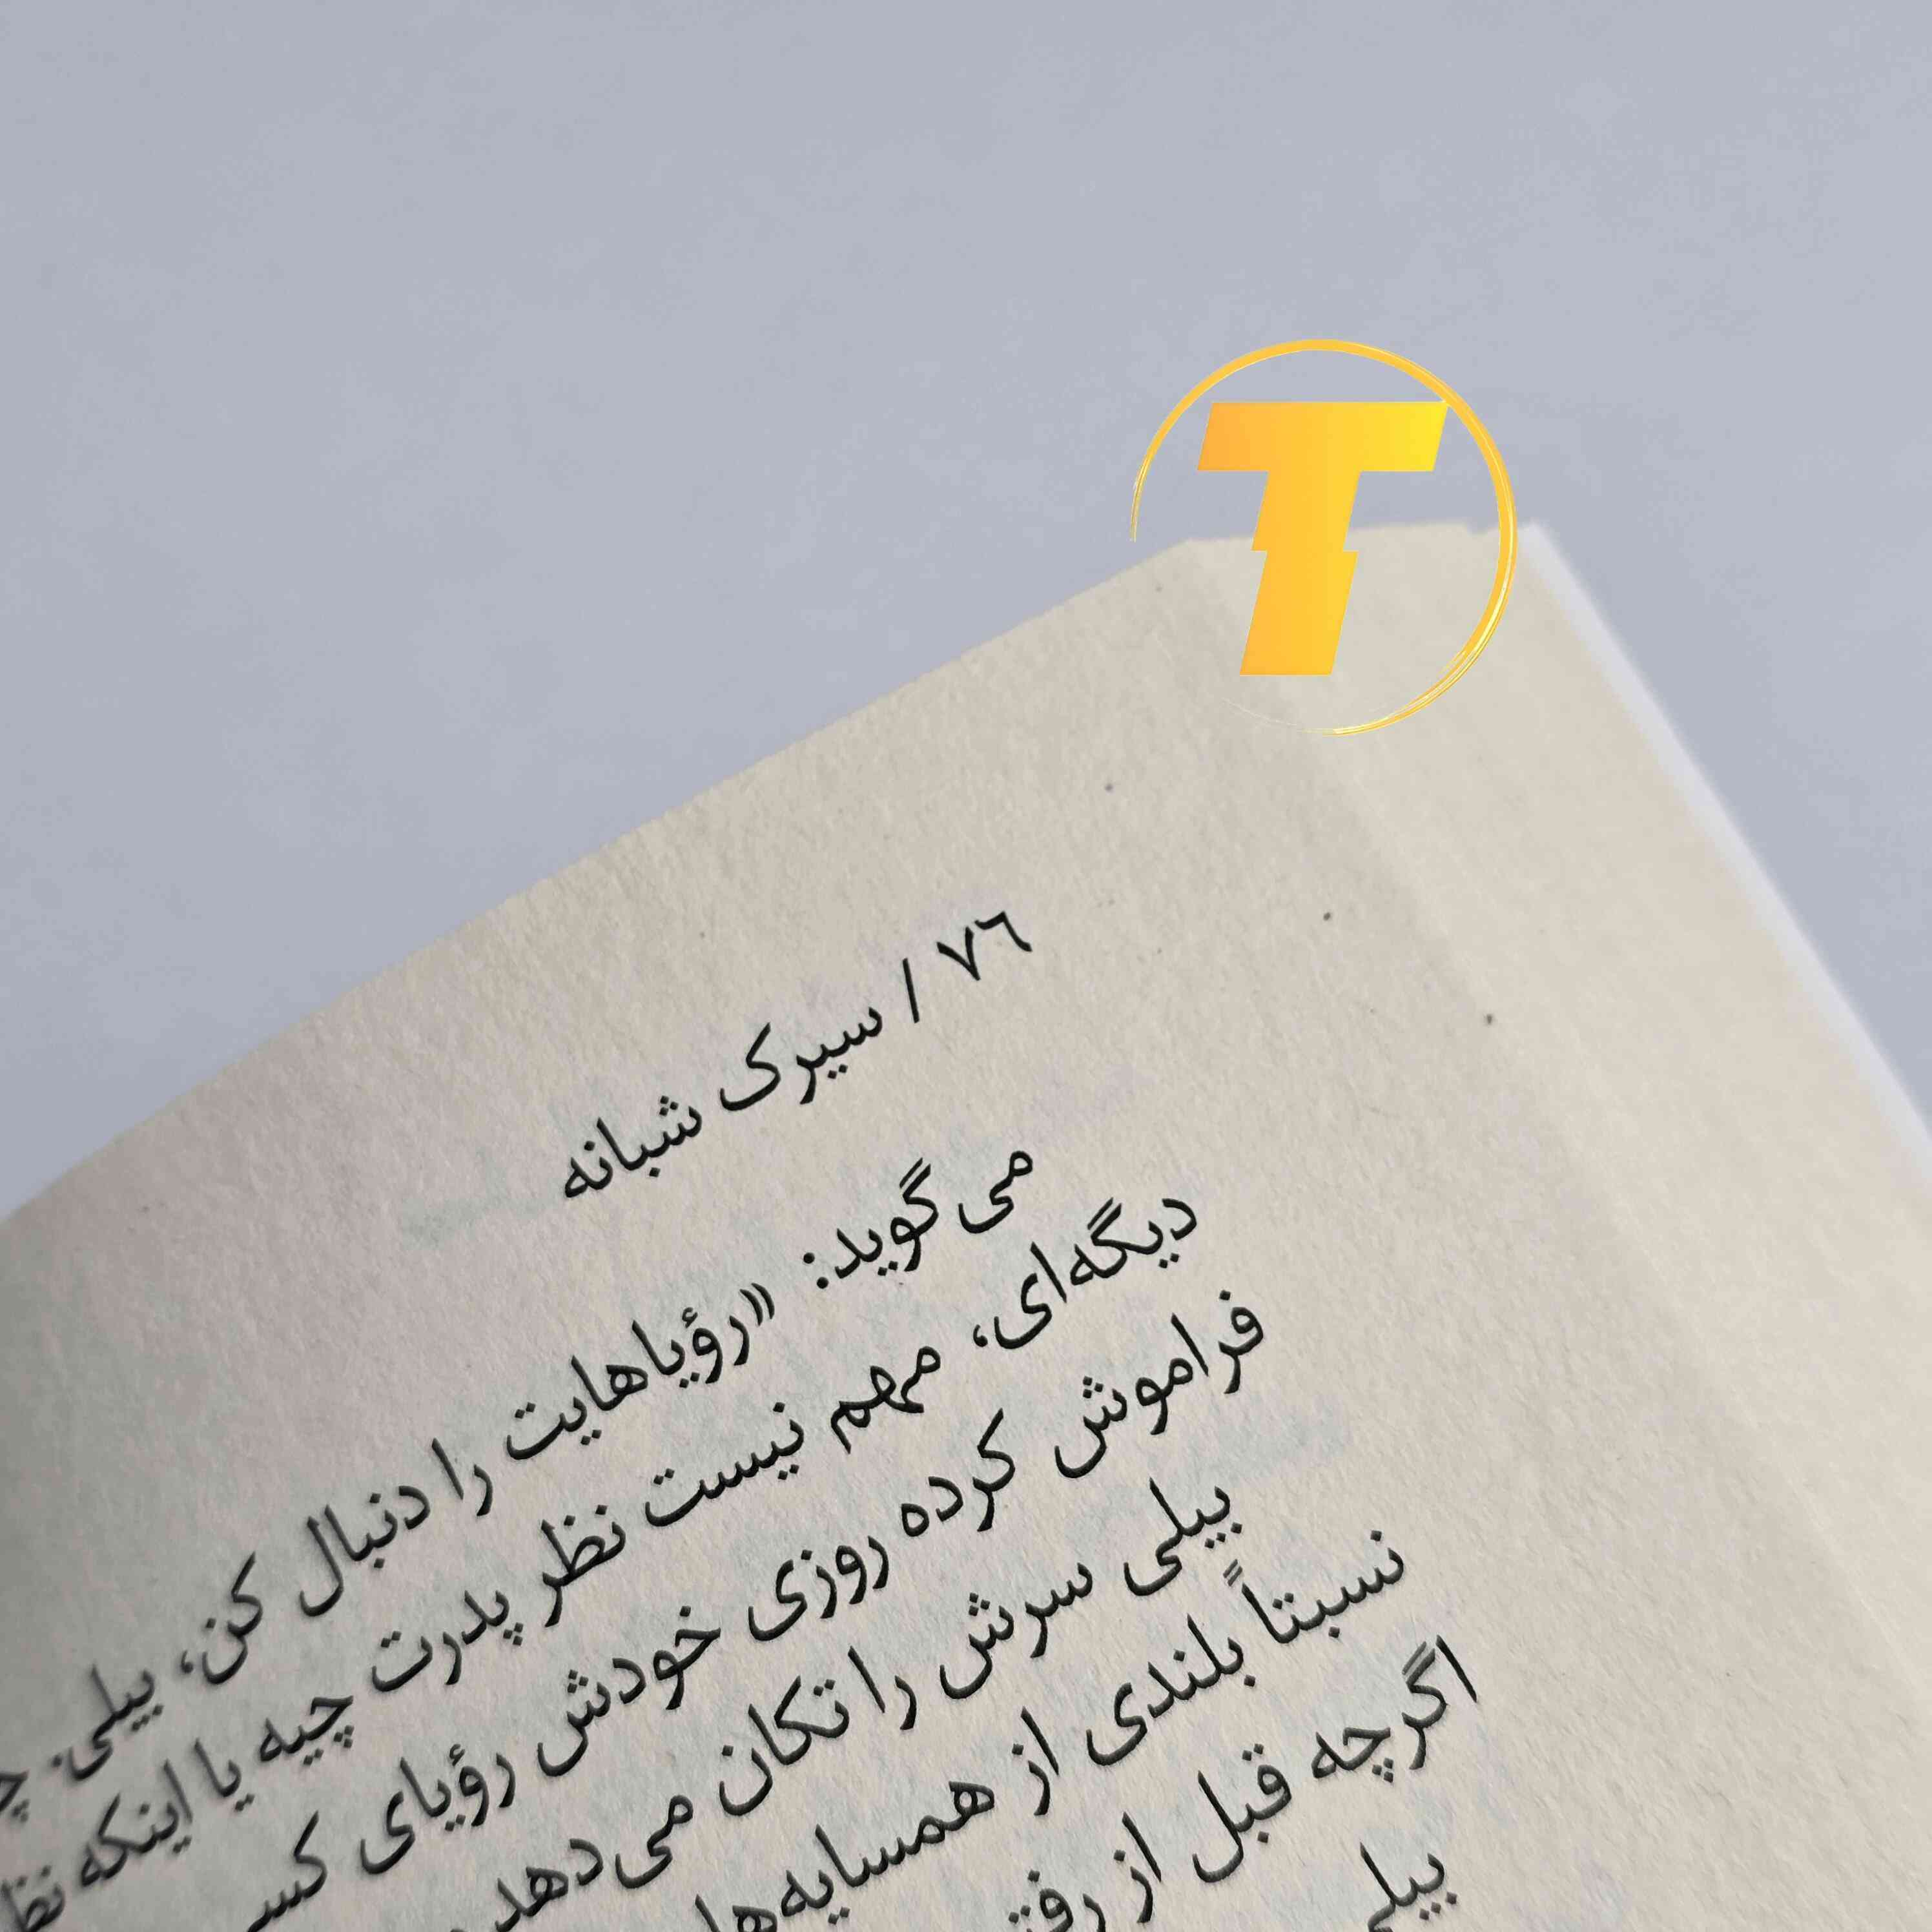 T
٧٦ / سیرک شبانه
می‌گوید: «رؤیاهایت را دنبال کن، بیلی.
دیگه‌ای، مهم نیست نظر پدرت چیه یا اینکه
فراموش کرده روزی خودش رؤیای
بیلی سرش را تکان می‌دهد
نسبتاً بلندی از همسایه‌ها
اگرچه قبل از
بیلی